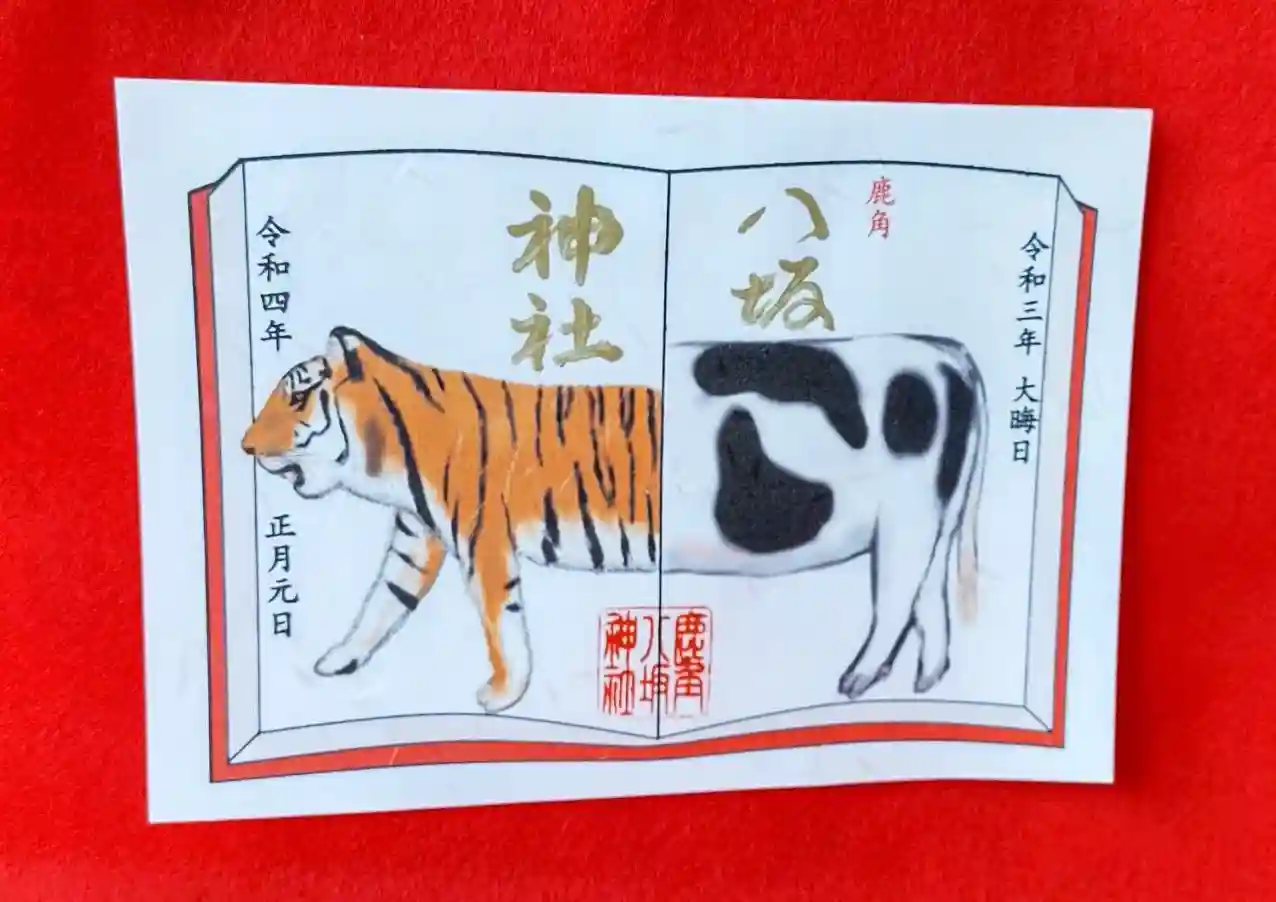 令和三年 大晦日
鹿角
八坂
神社
令和四年
正月元日
八坂
神社